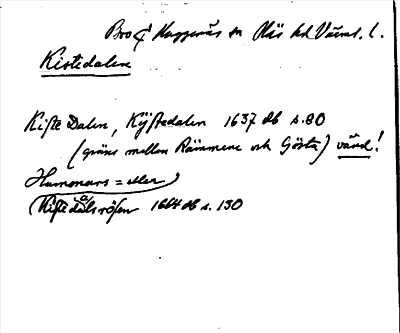 Bro o. Huggenäs sn Näs hd Värml. l.
Kistedalen
Kiste Dalen, Kijstedalen 1637 db s. 80
(gräns mellan Rämmene och Gösta) värd!
Humonars = eller
Kistedalsrösen 1664 db s. 130